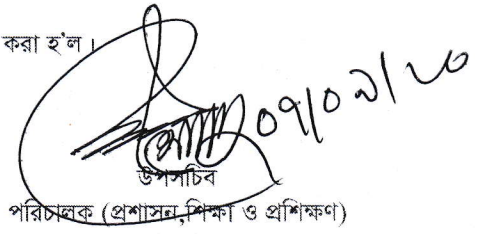 করা হ'ল।
০৭/০৯/২০
উপসচিব
পরিচালক (প্রশাসন,শিক্ষা ও প্রশিক্ষণ)